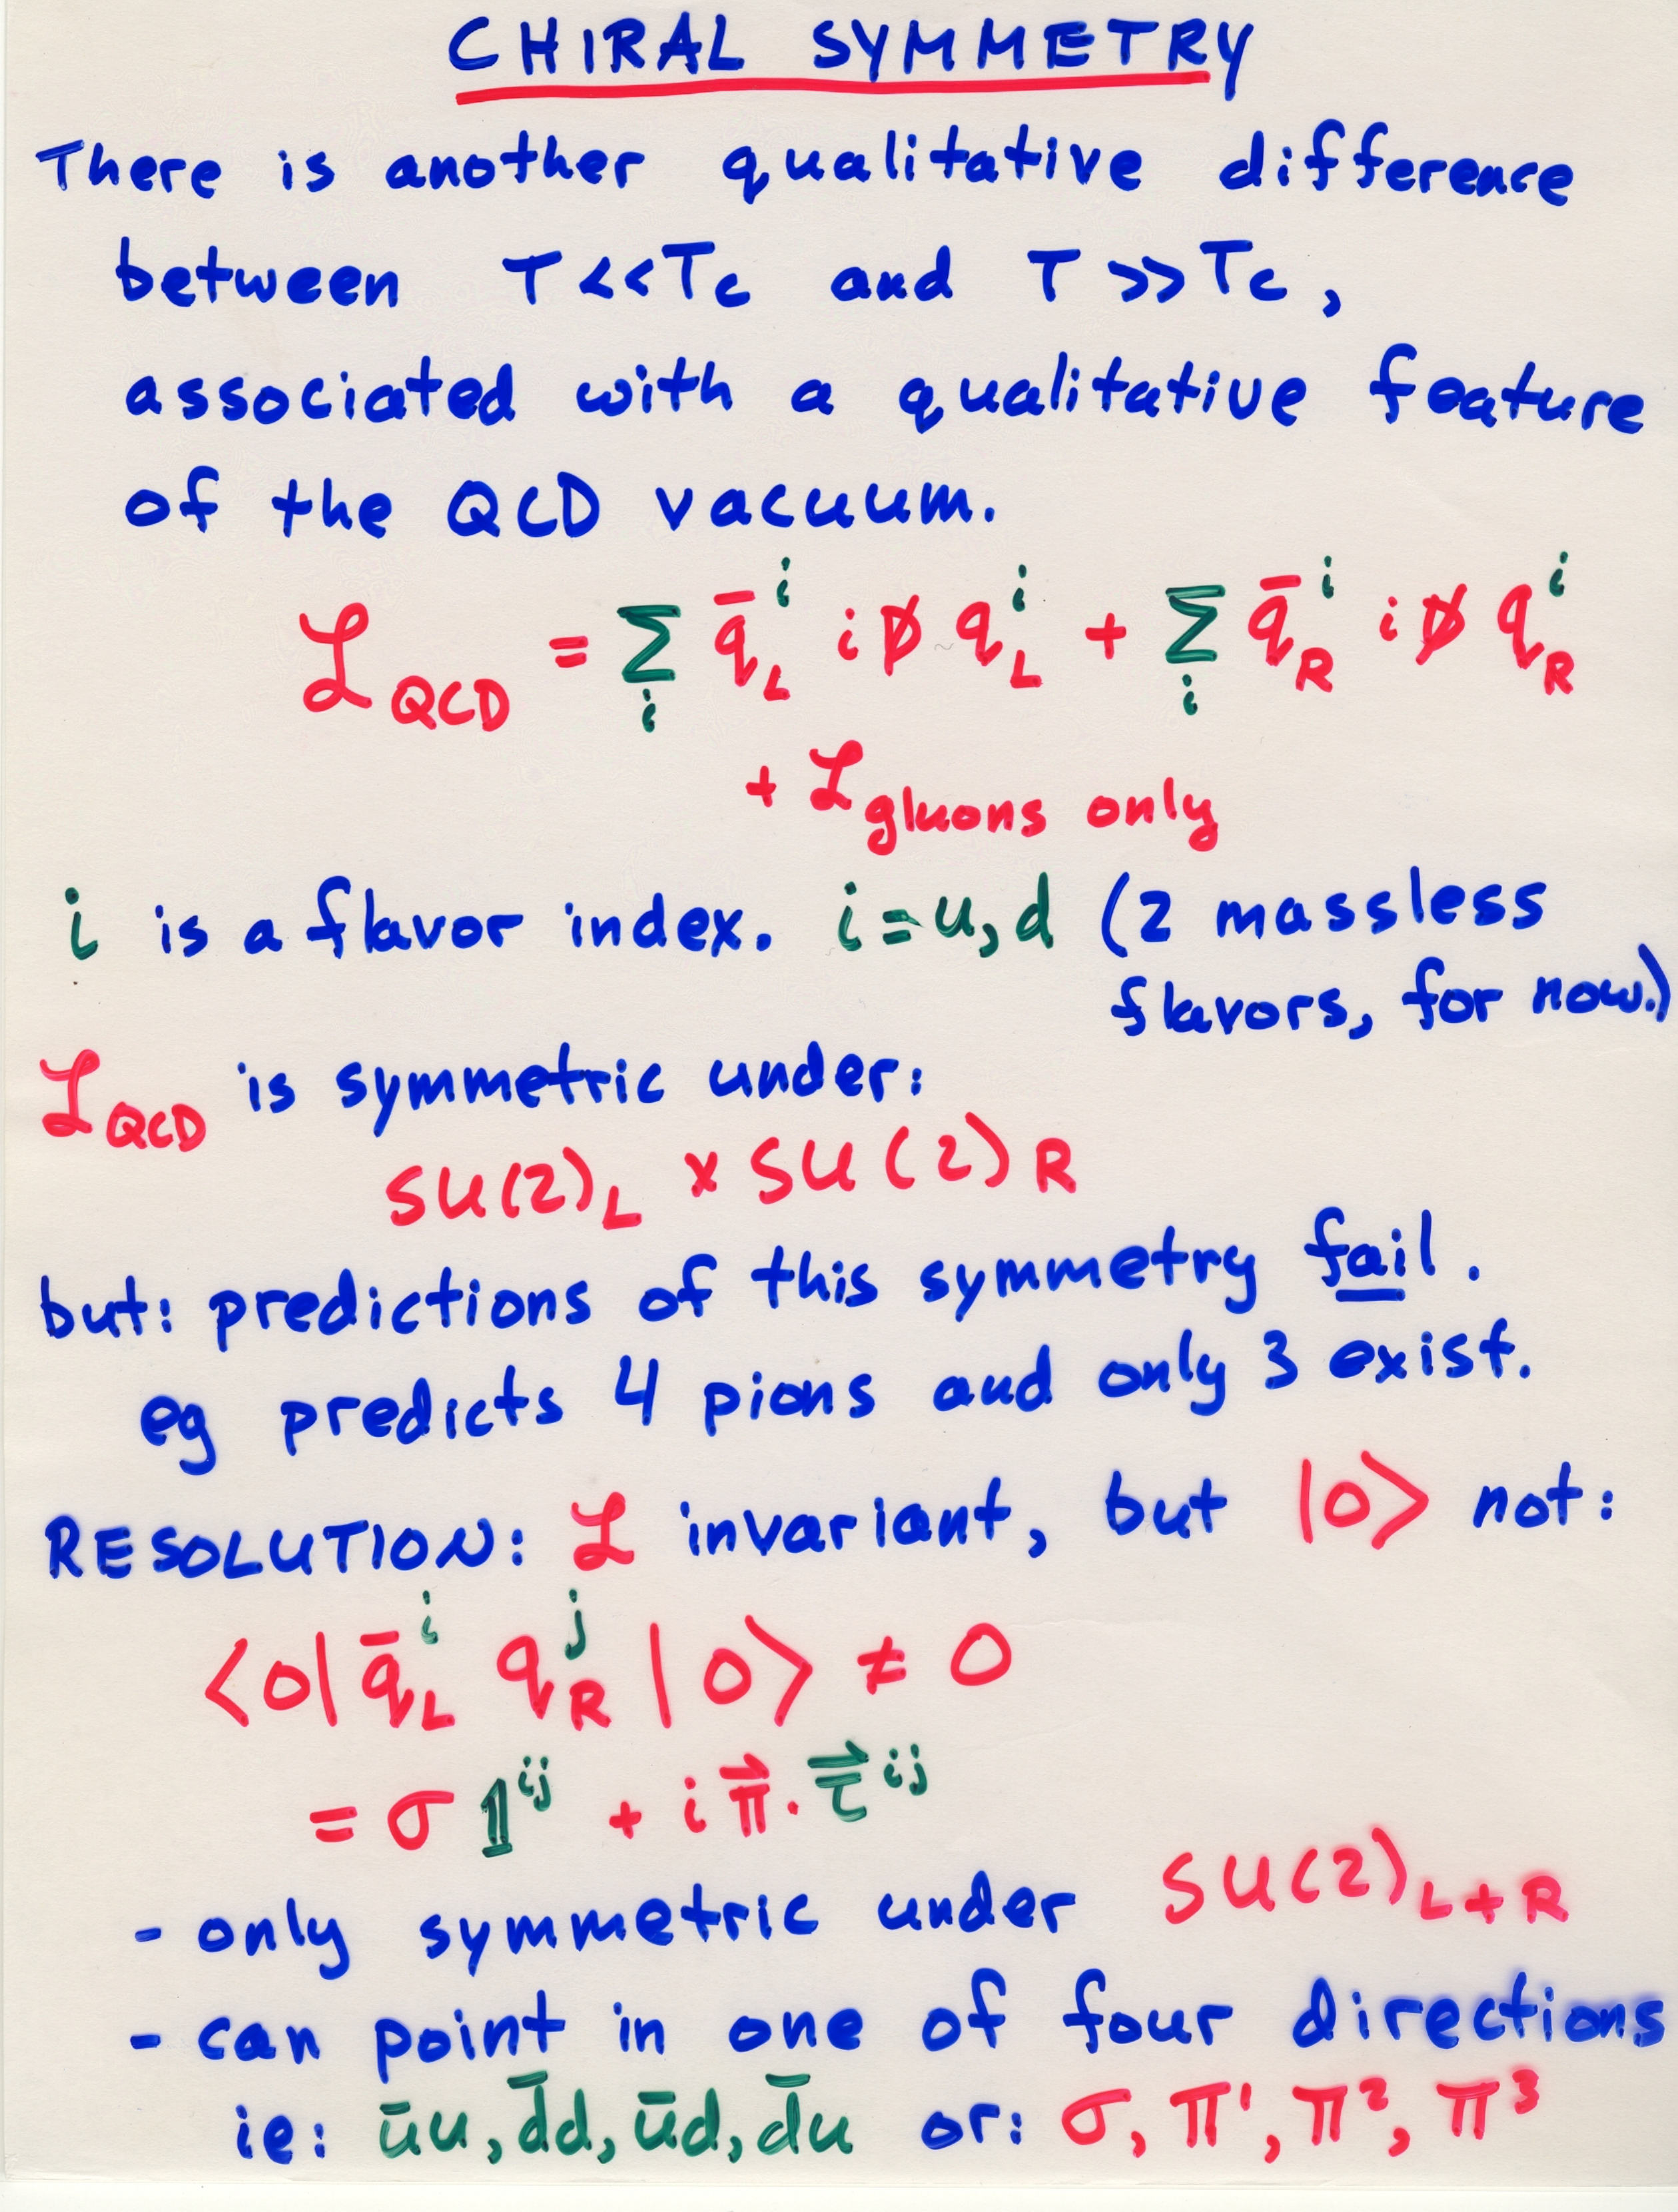 CHIRAL SYMMETRY
There is another qualitative difference
between T<<Tc and T>>Tc,
associated with a qualitative feature
of the QCD vacuum.
ℒ_QCD = Σ_i q̄_L^i i D̸ q_L^i + Σ_i q̄_R^i i D̸ q_R^i
+ ℒ_gluons only
i is a flavor index. i=u,d (2 massless
flavors, for now.)
ℒ_QCD is symmetric under:
SU(2)_L × SU(2)_R
but: predictions of this symmetry fail.
eg predicts 4 pions and only 3 exist.
RESOLUTION: ℒ invariant, but |0> not:
<0| q̄_L^i q_R^j |0> ≠ 0
= σ 𝟙^ij + i π⃗ · τ⃗^ij
- only symmetric under SU(2)_L+R
- can point in one of four directions
ie: ūu, d̄d, ūd, d̄u or: σ, π¹, π², π³